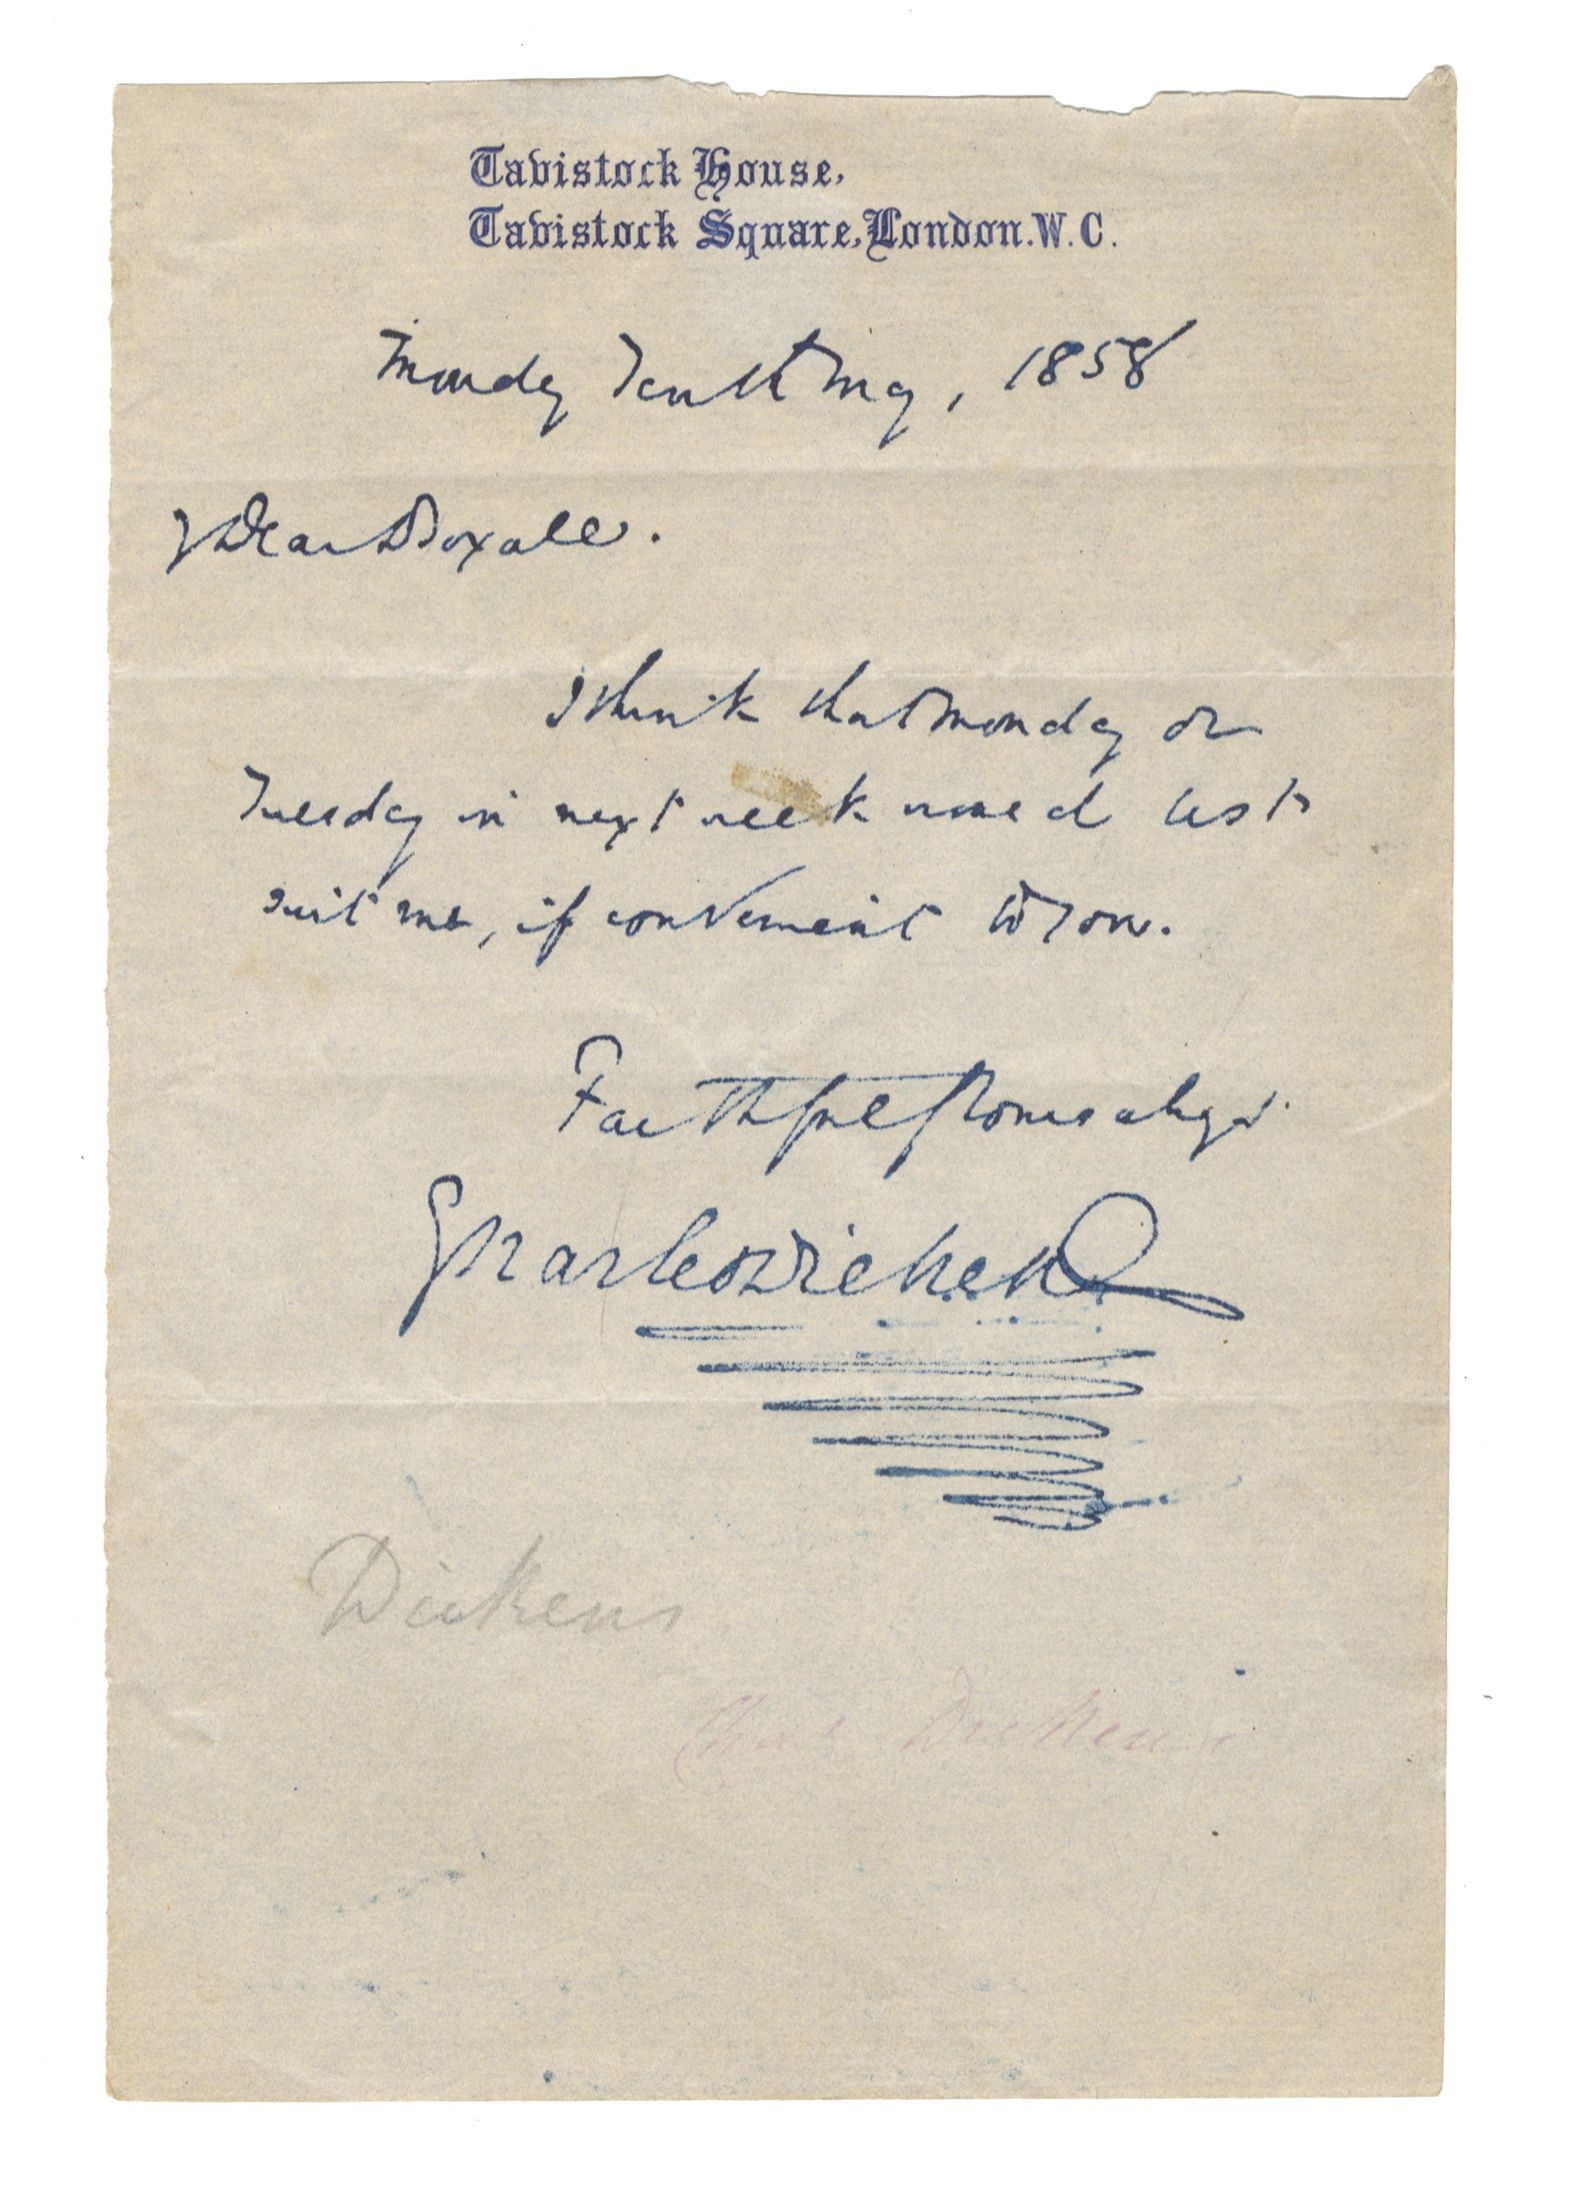 Tavistock House,
Tavistock Square, London. W. C.
Monday Tenth May, 1858
My Dear Boxall.
I think that Monday or
Tuesday in next week would best
suit me, if convenient to you.
Faithfully Yours always
Charles Dickens
Dickens
Chas Dickens